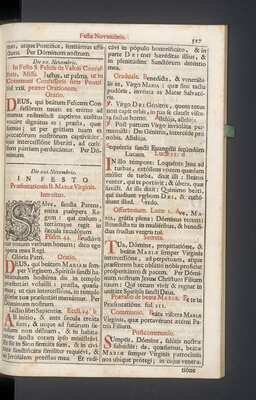 Festa Novembris.
527
Die 20. Novembris.
In Festo S. Felicis de Valois Confes-
Oratio.
DEUS, qui beatum Felicem Con-
fessorem tuum ex eremo ad
munus redimendi captivos cælitus
vocare dignatus es: præsta, quæ-
sumus; ut per gratiam tuam ex
peccatorum nostrorum captivitate
ejus intercessione liberati, ad cœle-
stem patriam perducamur. Per Dó-
minum.
Die 21. Novembris.
IN FESTO
Præsentationis B. MARIÆ Virginis.
Introitus.
SAlve, sancta Parens,
enixa puerpera Re-
gem: qui cœlum
terramque regit in
sæcula sæculorum.
Psalm. 44. Eructavit
cor meum verbum bonum: dico ego
opera mea Regi.
Gloria Patri. Oratio.
DEUS, qui beatam MARIAM sem-
per Virginem, Spiritûs sancti ha-
bitaculum, hodierna die in templo
præsentari voluisti: præsta, quæsu-
mus; ut ejus intercessione, in templo
gloriæ tuæ præsentari mereamur. Per
Dóminum nostrum.
Lectio libri Sapientiæ. Eccli. 24. b
AB initio, & ante sæcula creata
sum, & usque ad futurum sæ-
culum non desinam, & in habita-
tione sancta coram ipso ministravi.
Et sic in Sion firmata sum, & in civi-
tate sanctificata similiter requievi, &
in Jerusalem potestas mea. Et radi-
cavi in populo honorificato, & in
parte DEI mei hæreditas illius, &
in plenitudine sanctorum detentio
mea.
Graduale. Benedicta, & venerabi-
lis es, Virgo MARIA: quæ sine tactu
pudoris, inventa es Mater Salvato-
ris.
℣. Virgo DEI Genitrix, quem totus
non capit orbis, in tua se clausit visce-
ra factus homo. Allelúja, allelúja.
℣. Post partum Virgo inviolata per-
mansisti: Dei Genitrix, intercede pro
nobis. Allelúja.
Sequentia sancti Evangelii secundùm
Lucam. Lucæ 11. d
IN illo tempore: Loquente Jesu ad
turbas, extollens vocem quædam
mulier de turba, dixit illi: Beatus
venter, qui te portavit, & ubera, quæ
suxisti. At ille dixit: Quinimo beati,
qui audiunt verbum DEI, & custo-
diunt illud. Credo.
Offertorium. Lucæ 1. Ave, MA-
RIA, gratia plena: Dóminus tecum:
benedicta tu in mulieribus, & bene-
dictus fructus ventris tui.
Secreta.
TUA, Dómine, propitiatione, &
beatæ MARIÆ semper Virginis
intercessione, ad perpetuam, atque
præsentem hæc oblatio nobis proficiat
prosperitatem & pacem. Per Dó-
minum nostrum Jesum Christum Filium
tuum: Qui tecum vivit & regnat in
unitate Spiritûs sancti Deus.
Præfatio de beata MARIA. Et te in
Præsentatione. fol. 211.
Communio. Beata viscera MARIÆ
Virginis, quæ portaverunt æterni Pa-
tris Filium.
Postcommunio.
SUmptis, Dómine, salutis nostræ
subsidiis: da, quæsumus, beatæ
MARIÆ semper Virginis patrociniis
nos ubique protegi; in cujus venera-
tione